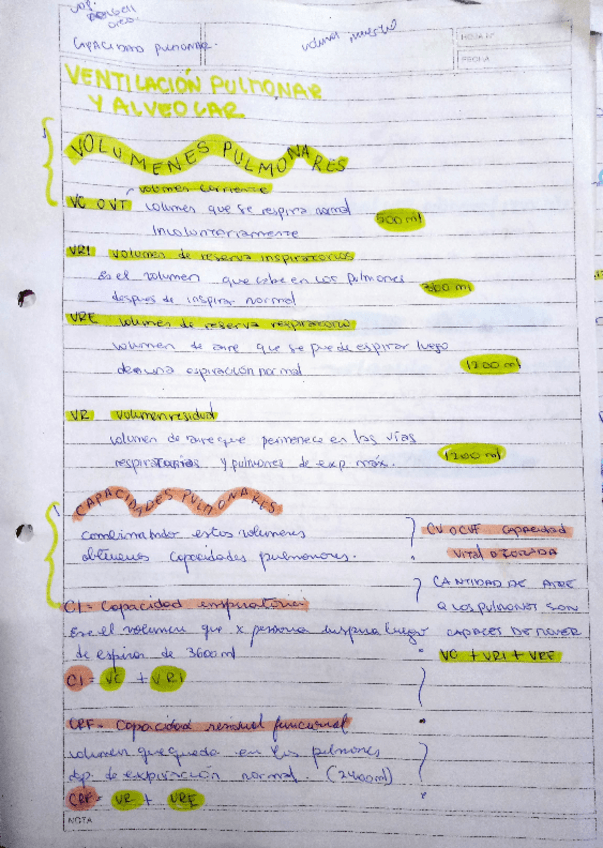 Capacidad pulmonar.
HOJA N°
FECHA
VENTILACIÓN PULMONAR
Y ALVEOLAR
VOLUMENES PULMONARES
volumen corriente
VC O VT volumen que se respira normal
Involuntariamente
500 ml
VRI volumen de reserva inspiratorios
Es el volumen que cabe en los pulmones
despues de inspirar normal
VRE volumen de reserva respiratorio
volumen de aire que se puede espirar luego
de una espiración normal
1200 ml
VR volumen residual
volumen de aire que permenece en las vías
respiratorias y pulmones de exp máx.
1200 ml
CAPACIDADES PULMONARES
combinando estos volumenes
obtenemos capacidades pulmonares.
CI = Capacidad inspiratoria
Es el volumen que x persona inspira luego
de espirar de 3600 ml
CI = VC + VRI
CRF = Capacidad residual funcional
volumen que queda en los pulmones
dp. de expiración normal. (2400ml)
CRF = VR + VRE
CV O CVF capacidad
VITAL O FORZADA
CANTIDAD DE AIRE
A LOS PULMONES SON
CAPACES DE MOVER
VC + VRI + VRE
NOTA